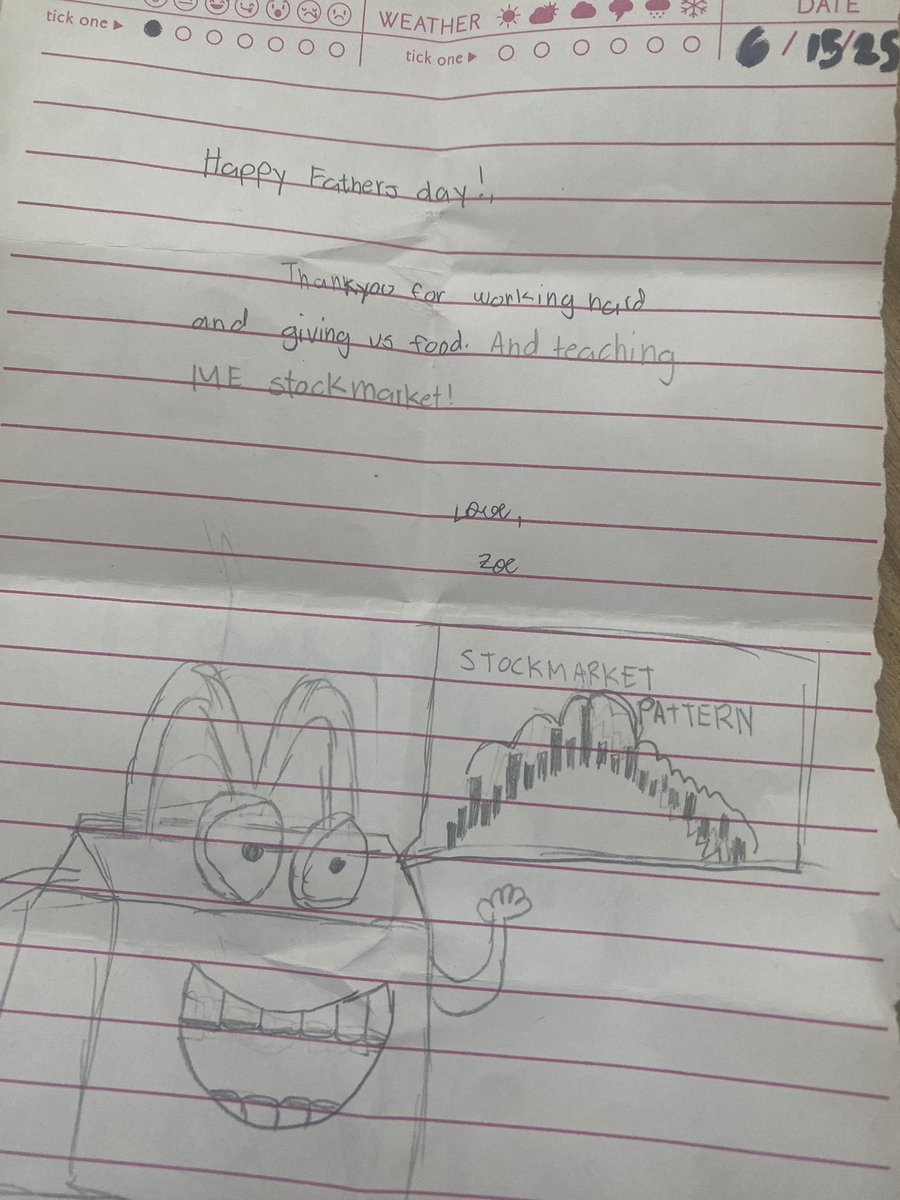 tick one ▶
WEATHER
tick one ▶
DATE
6/15/25
Happy Fathers day!!
Thankyou for working hard
and giving us food. And teaching
ME stockmarket!
Love,
Zoe
STOCKMARKET
PATTERN